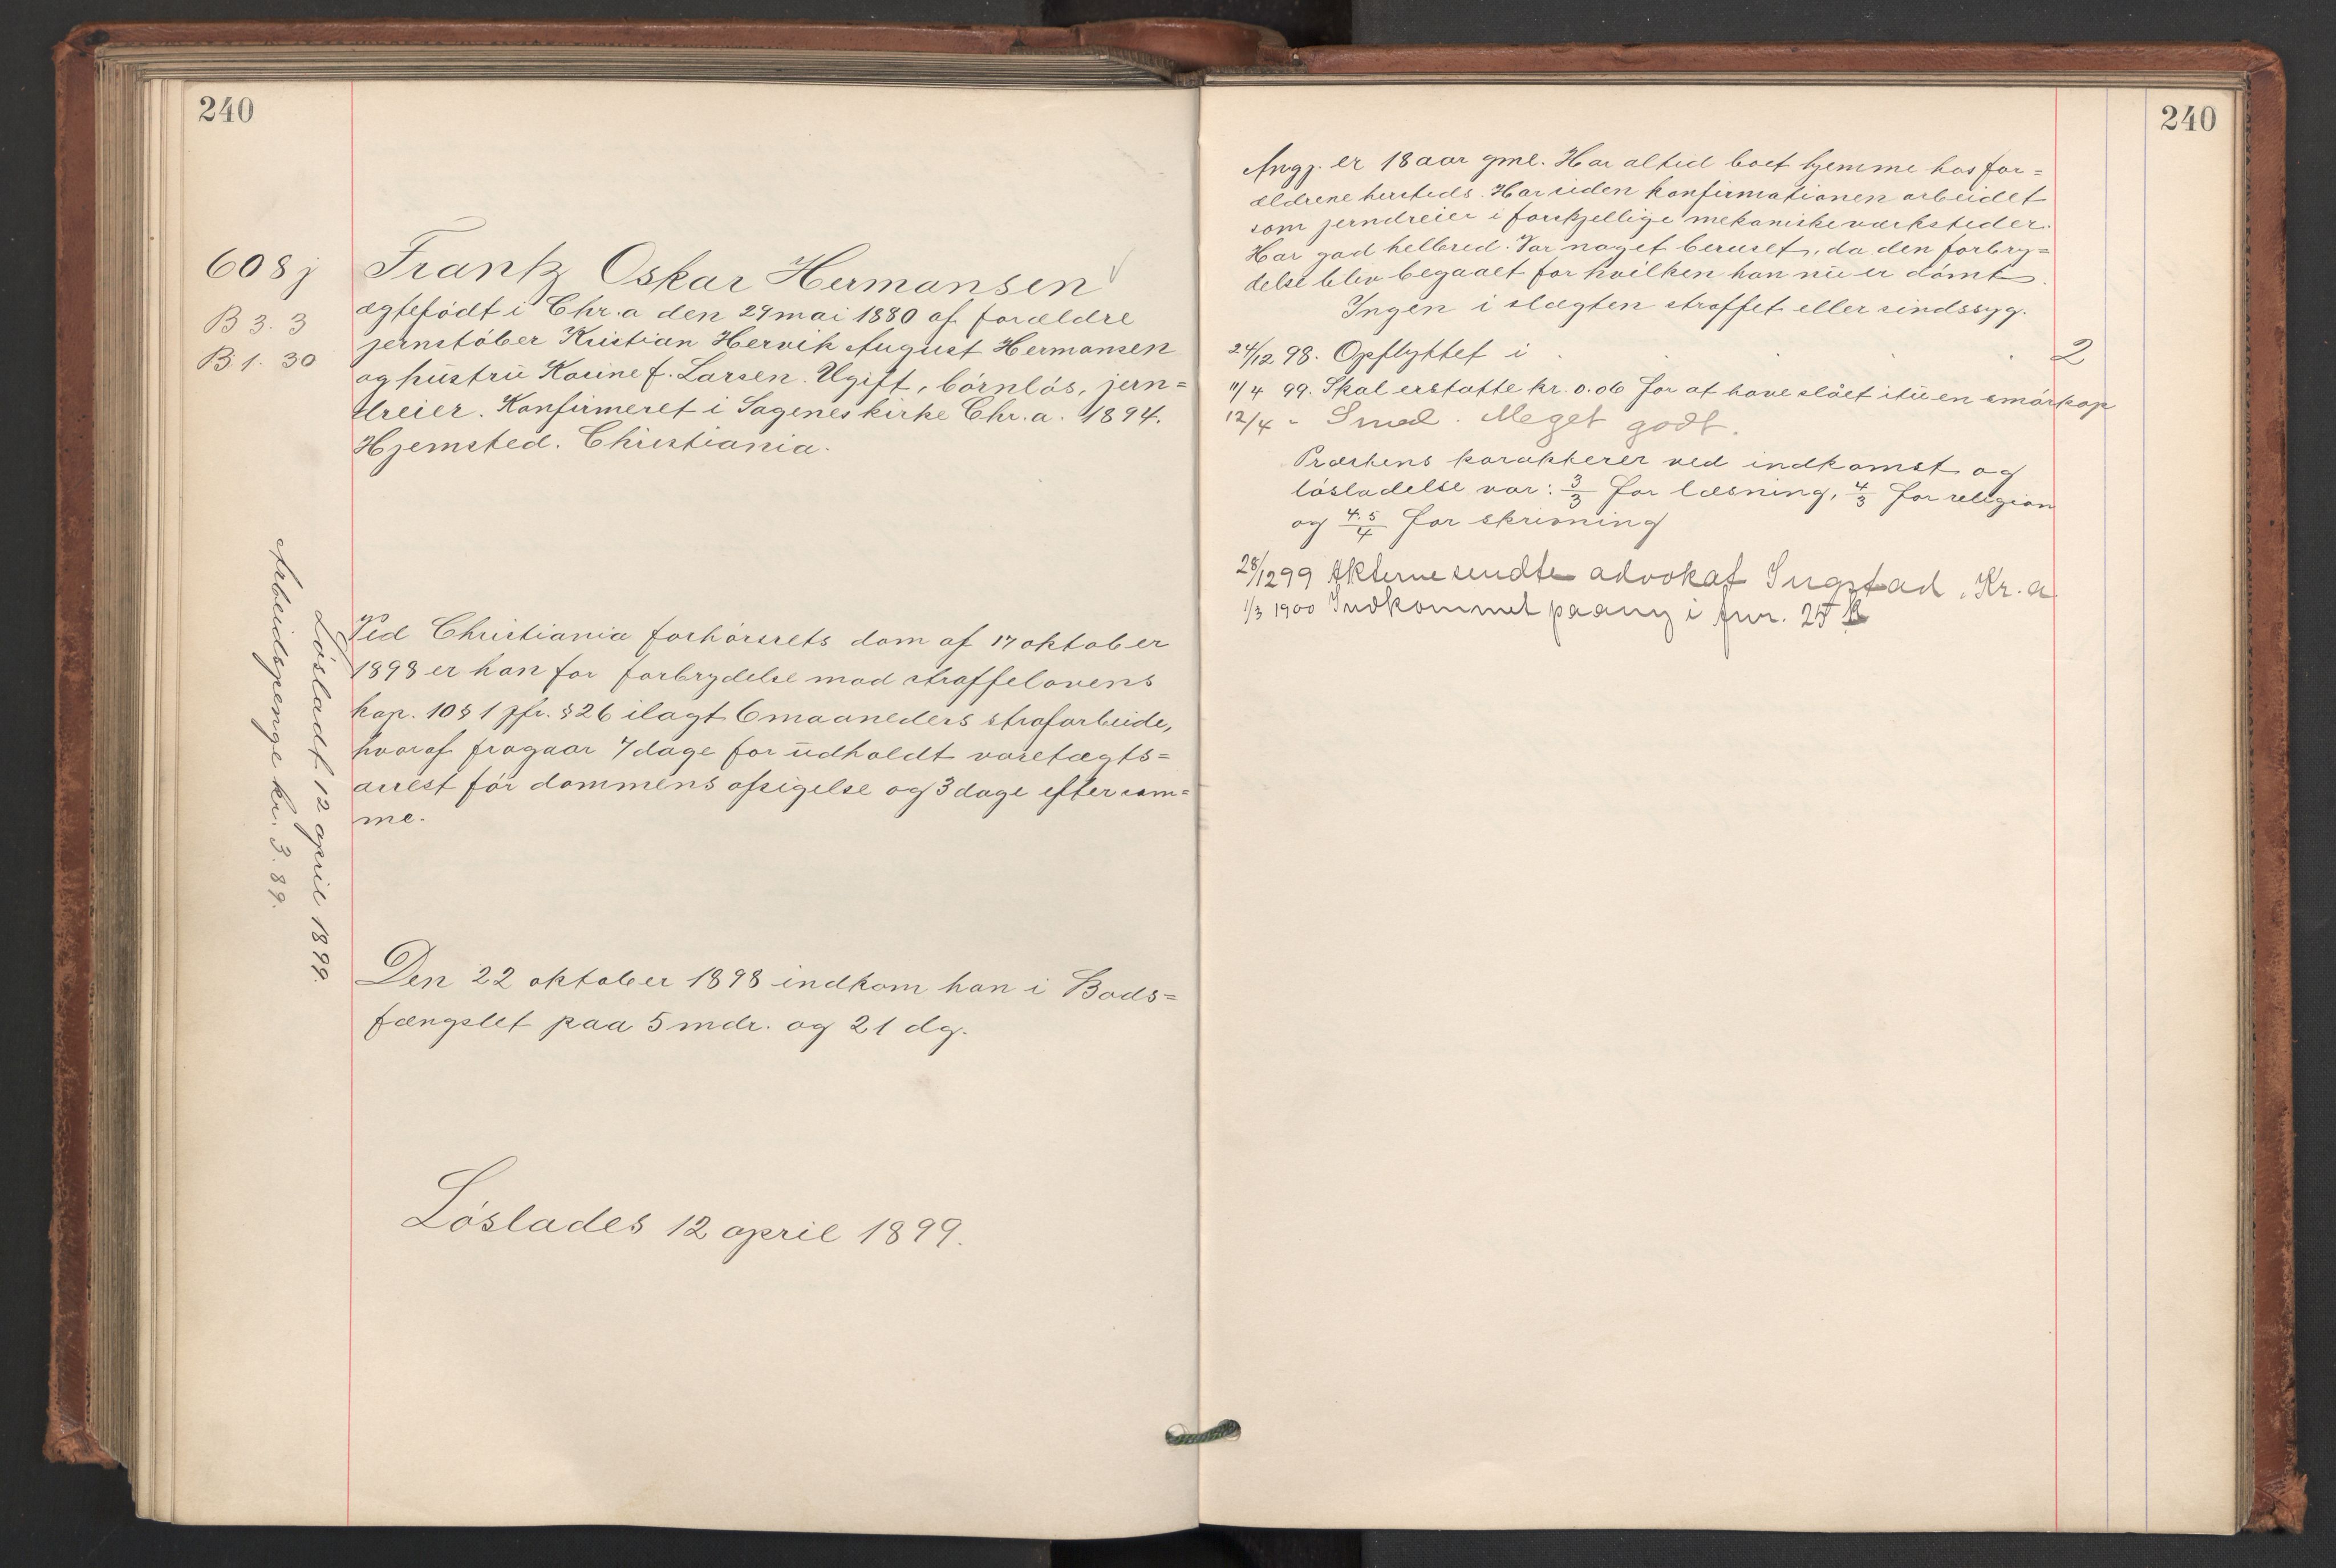 240
608 j
B 3. 3
B. 1. 30
Frank Oskar Hermansen
ægtefödt i Chr.a den 29 mai 1880 af forældre
jernstöber Kristian Hervik August Hermansen
og hustru Karine f. Larsen. Ugift, börnlös, jern=
dreier. Konfirmeret i Sagenes kirke Chr.a. 1894.
Hjemsted. Christiania.
Ved Christiania forhörsrets dom af 17 oktober
1898 er han for forbrydelse mod straffelovens
kap. 10 § 1 jfr. § 26 ilagt 6 maaneders strafarbeide,
hvoraf fragaar 7 dage for udholdt varetægts=
arrest för dommens afsigelse og 3 dage efter sam=
me.
Lösladt 12 april 1899.
Arbeidspenge kr. 3.89.
Den 22 oktober 1898 indkom han i Bods=
fængslet paa 5 mdr. og 21 dg.
Löslades 12 april 1899.
240
Angj. er 18 aar gml. Har altid boet hjemme hos for=
ældrene hersteds. Har siden konfirmationen arbeidet
som jerndreier i forskjellige mekaniske værksteder.
Har god helbred. Var noget beruset, da den forbry=
delse blev begaaet for hvilken han nu er dömt.
Ingen i slægten straffet eller sindssyg.
24/12 98. Opflyttet i . . . 2
11/4 99. Skal erstatte kr. 0.06 for at have slået itu en smörkop
12/4 - Smed. Meget godt.
Præstens karakterer ved indkomst og
lösladelse var: 3/3 for læsning, 4/3 for religion
og 4.5/4 for skrivning
28/12 99 Akterne sendte advokat Ingstad, Kr.a.
1/3 1900 Indkommet paany i fvr. 25